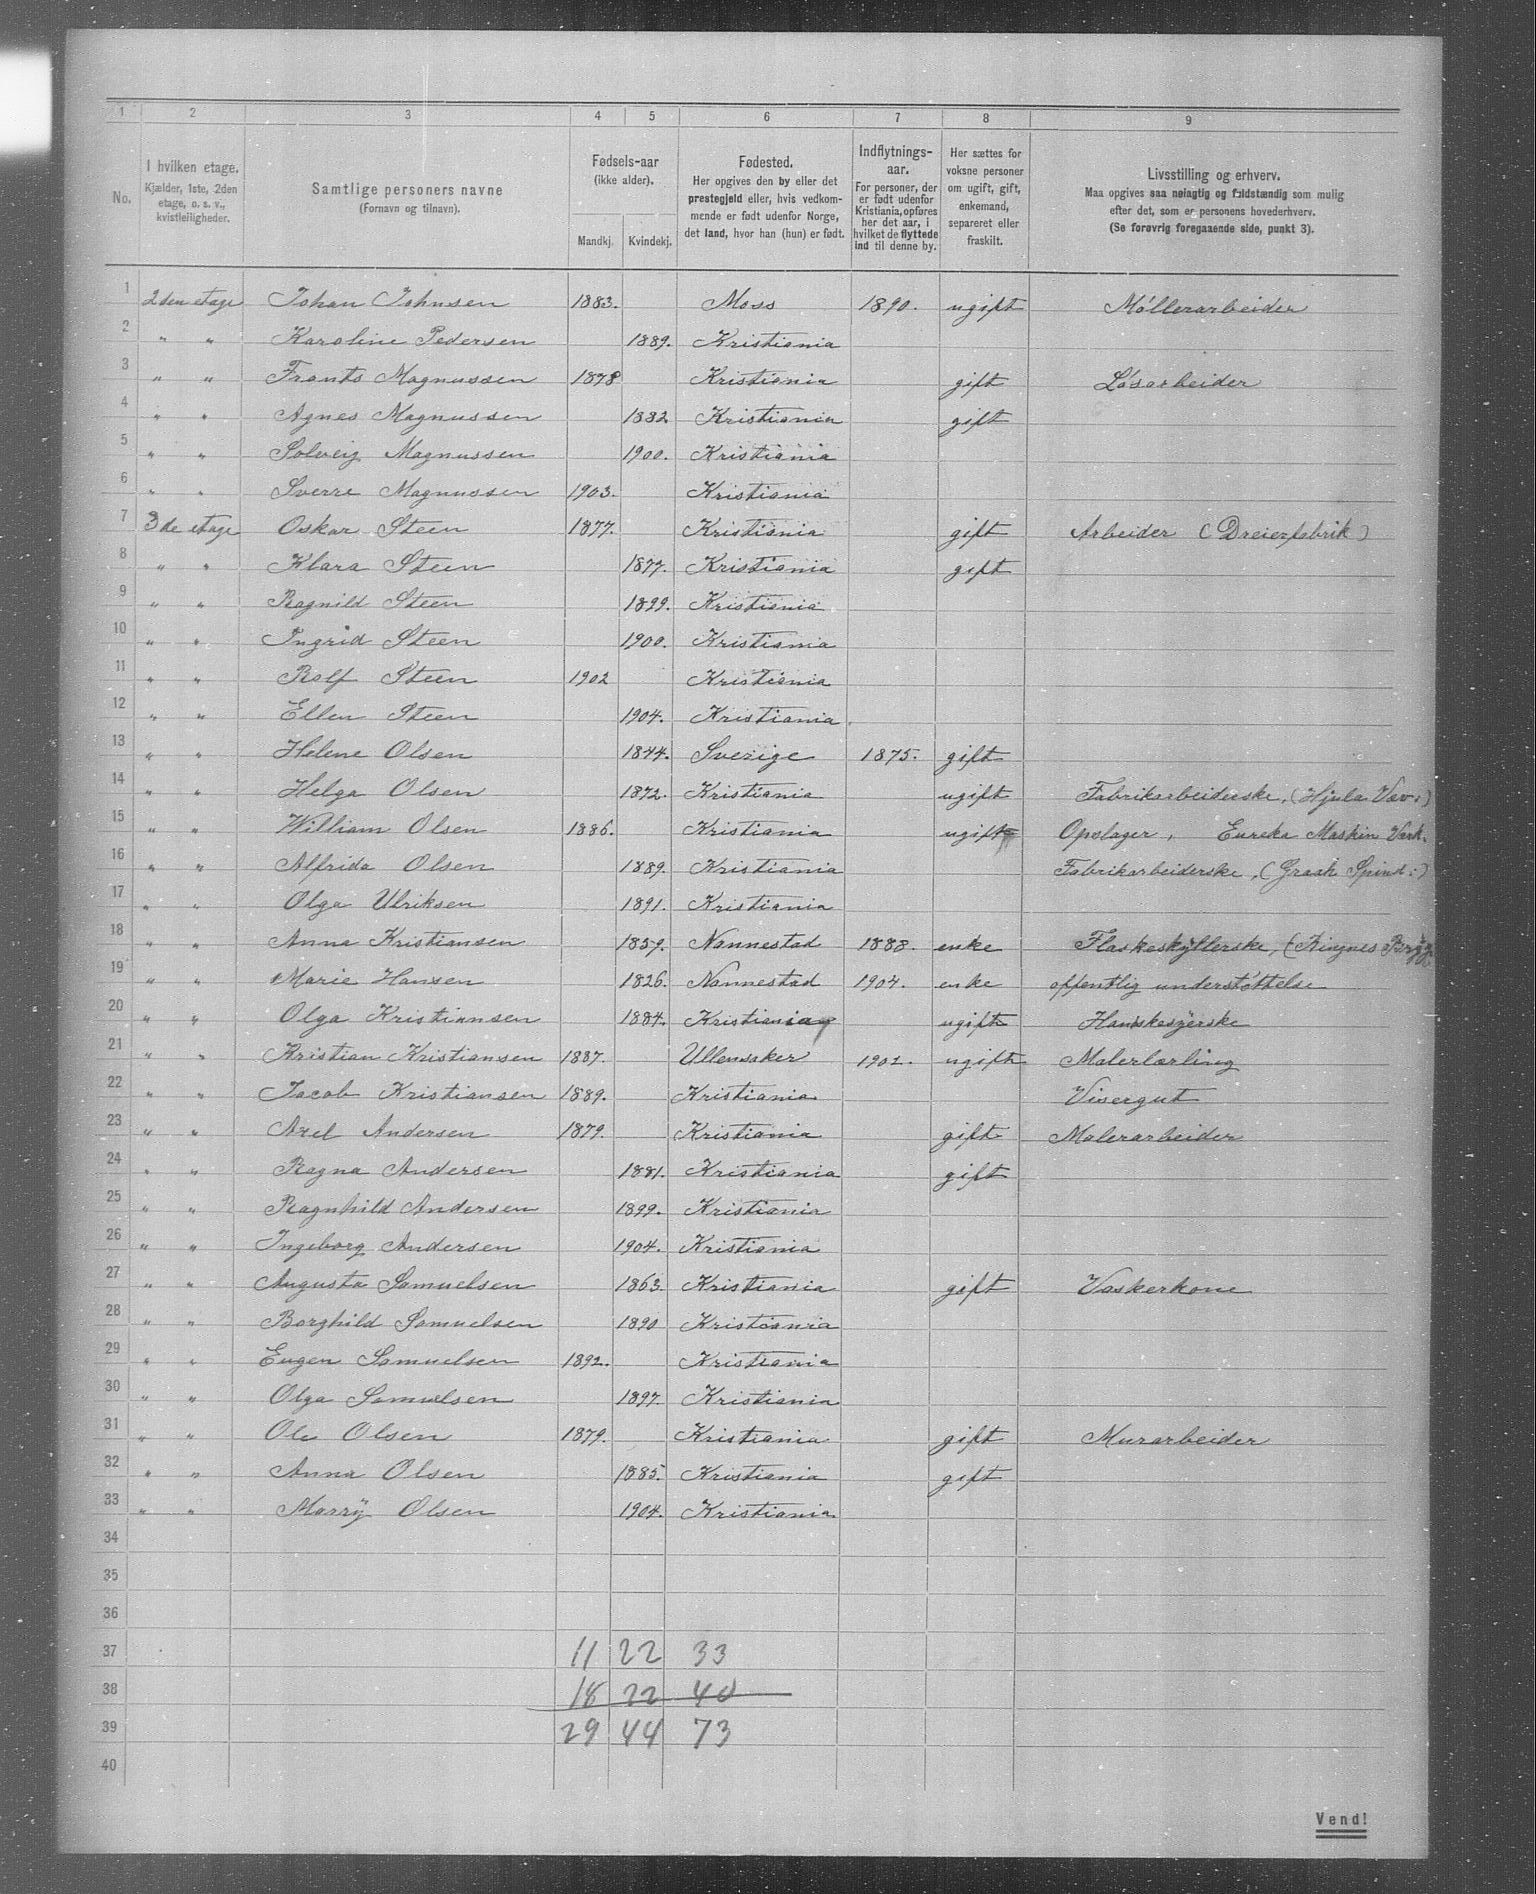 1 2 3 4 5 6 7 8 9
No. I hvilken etage. Kjælder, 1ste, 2den etage, o. s. v., kvistleiligheder. Samtlige personers navne (Fornavn og tilnavn). Fødsels-aar (ikke alder). Mandkj. Kvindekj. Fødested. Her opgives den by eller det prestegjeld eller, hvis vedkommende er født udenfor Norge, det land, hvor han (hun) er født. Indflytnings-aar. For personer, der er født udenfor Kristiania, opføres her det aar, i hvilket de flyttede ind til denne by. Her sættes for voksne personer om ugift, gift, enkemand, separeret eller fraskilt. Livsstilling og erhverv. Maa opgives saa nøiagtig og fuldstændig som mulig efter det, som er personens hovederhverv. (Se forøvrig foregaaende side, punkt 3).
1 2den etage Johan Johnsen 1883. Moss 1890. ugift Møllerarbeider
2 " " Karoline Pedersen 1889. Kristiania
3 " " Frants Magnussen 1878 Kristiania gift Løsarbeider
4 " " Agnes Magnussen 1882 Kristiania gift
5 " " Solveig Magnussen 1900. Kristiania
6 " " Sverre Magnussen 1903. Kristiania
7 3de etage Oskar Steen 1877. Kristiania gift Arbeider (Dreierfabrik)
8 " " Klara Steen 1877. Kristiania gift
9 " " Ragnild Steen 1899. Kristiania
10 " " Ingrid Steen 1900. Kristiania
11 " " Rolf Steen 1902 Kristiania
12 " " Ellen Steen 1904. Kristiania.
13 " " Helene Olsen 1844. Sverige 1875. gift
14 " " Helga Olsen 1872. Kristiania ugift Fabrikarbeiderske, (Hjula Væv:)
15 " " William Olsen 1886. Kristiania ugift Opslager, Eureka Maskin Værk.
16 " " Alfrida Olsen 1889. Kristiania Fabrikarbeiderske, (Graah Spind:)
17 " " Olga Ulriksen 1891. Kristiania
18 " " Anna Kristiansen 1859. Nannestad 1888. enke Flaskeskyllerske, (Ringnes Brygg
19 " " Marie Hansen 1826. Nannestad 1904. enke offentlig understøttelse
20 " " Olga Kristiansen 1884. Kristiania ugift Hanskesyerske
21 " " Kristian Kristiansen 1887. Ullensaker 1902. ugift Malerlærling
22 " " Jacob Kristiansen 1889. Kristiania Visergut
23 " " Axel Andersen 1879. Kristiania gift Malerarbeider
24 " " Ragna Andersen 1881. Kristiania gift
25 " " Ragnhild Andersen 1899. Kristiania
26 " " Ingeborg Andersen 1904. Kristiania
27 " " Augusta Samuelsen 1863. Kristiania gift Vaskerkone
28 " " Borghild Samuelsen 1890 Kristiania
29 " " Eugen Samuelsen 1892. Kristiania
30 " " Olga Samuelsen 1897. Kristiania
31 " " Ole Olsen 1879. Kristiania gift Murarbeider
32 " " Anna Olsen 1885. Kristiania gift
33 " " Marry Olsen 1904. Kristiania
34
35
36
37 11 22 33
38 18 22 40
39 29 44 73
40
Vend!